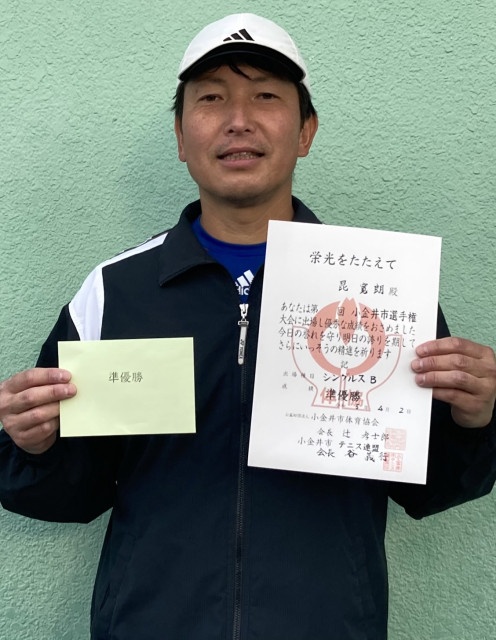 準優勝
栄光をたたえて
昆 寛朗 殿
あなたは第 回 小金井市選手権
大会に出場し優秀な成績をおさめました
今日の誉れを守り明日の誇りを期して
さらにいっそうの精進を祈ります
記
シングルスB
成績 準優勝
4 2
小金井市体育協会
会長 辻
小金井市 テニス連盟
会長